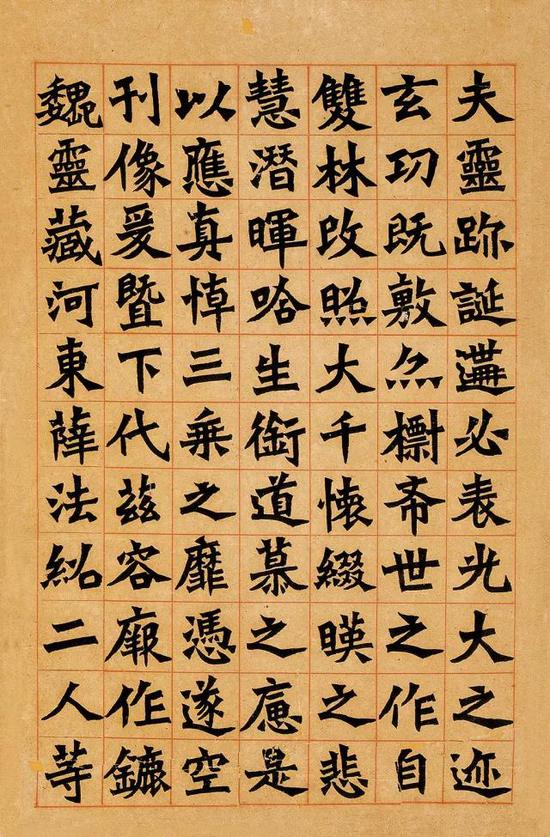 夫靈跡誕遘必表光大之迹
玄功既敷亦摽之作自
雙林改照大千懷綴暎之悲
慧潛暉哈生銜道慕之是
以應真悼三乘之靡憑遂空
刊像爰暨下代茲容厥作鑣
魏靈藏河東薛法紹二人等